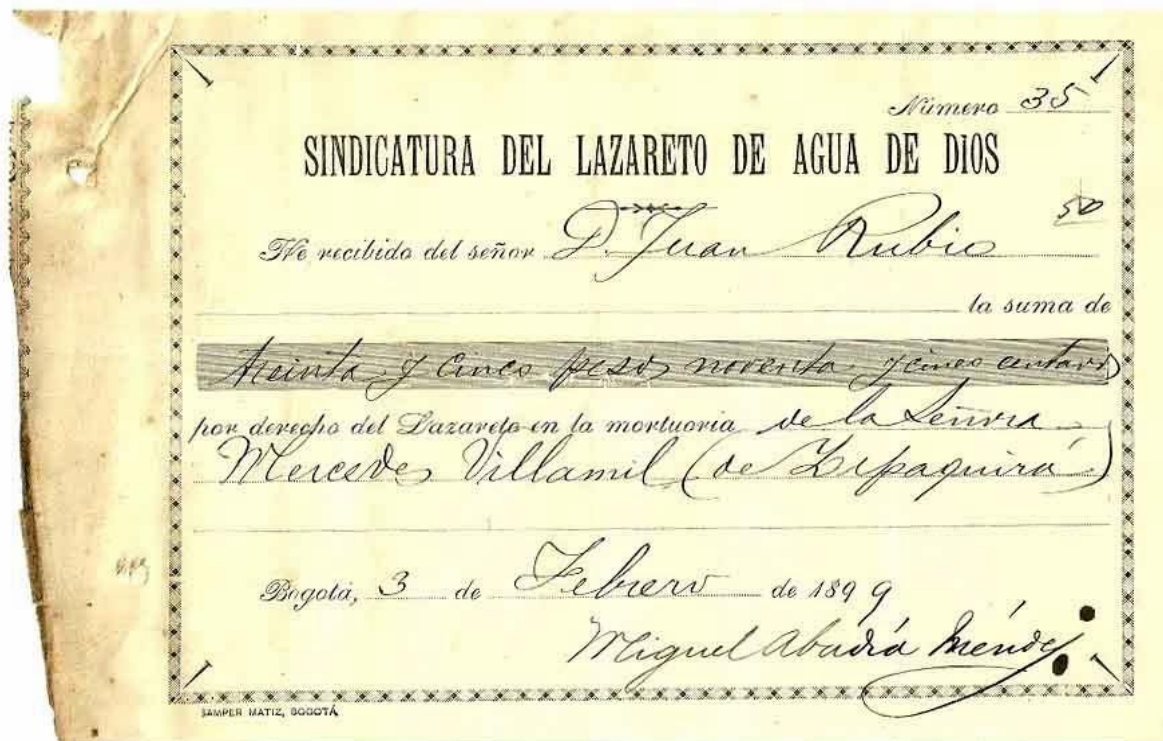 Número 35
SINDICATURA DEL LAZARETO DE AGUA DE DIOS
50
He recibido del señor D. Juan Rubio
la suma de
treinta y cinco pesos noventa y cinco centavos
por derecho del Lazareto en la mortuoria de la Señora
Mercedes Villamil (de Zipaquirá)
Bogotá, 3 de Febrero de 1899
Miguel Abadía Méndez
SAMPER MATIZ, BOGOTÁ